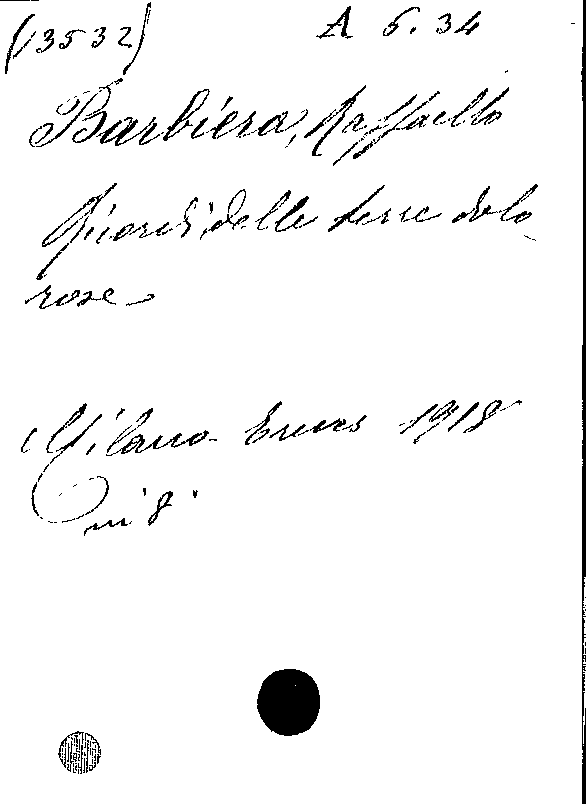 (13532) A 5.34
Barbiera, Raffaello
Ricordi delle terre dolo-
rose
Milano Treves 1918
in 8.